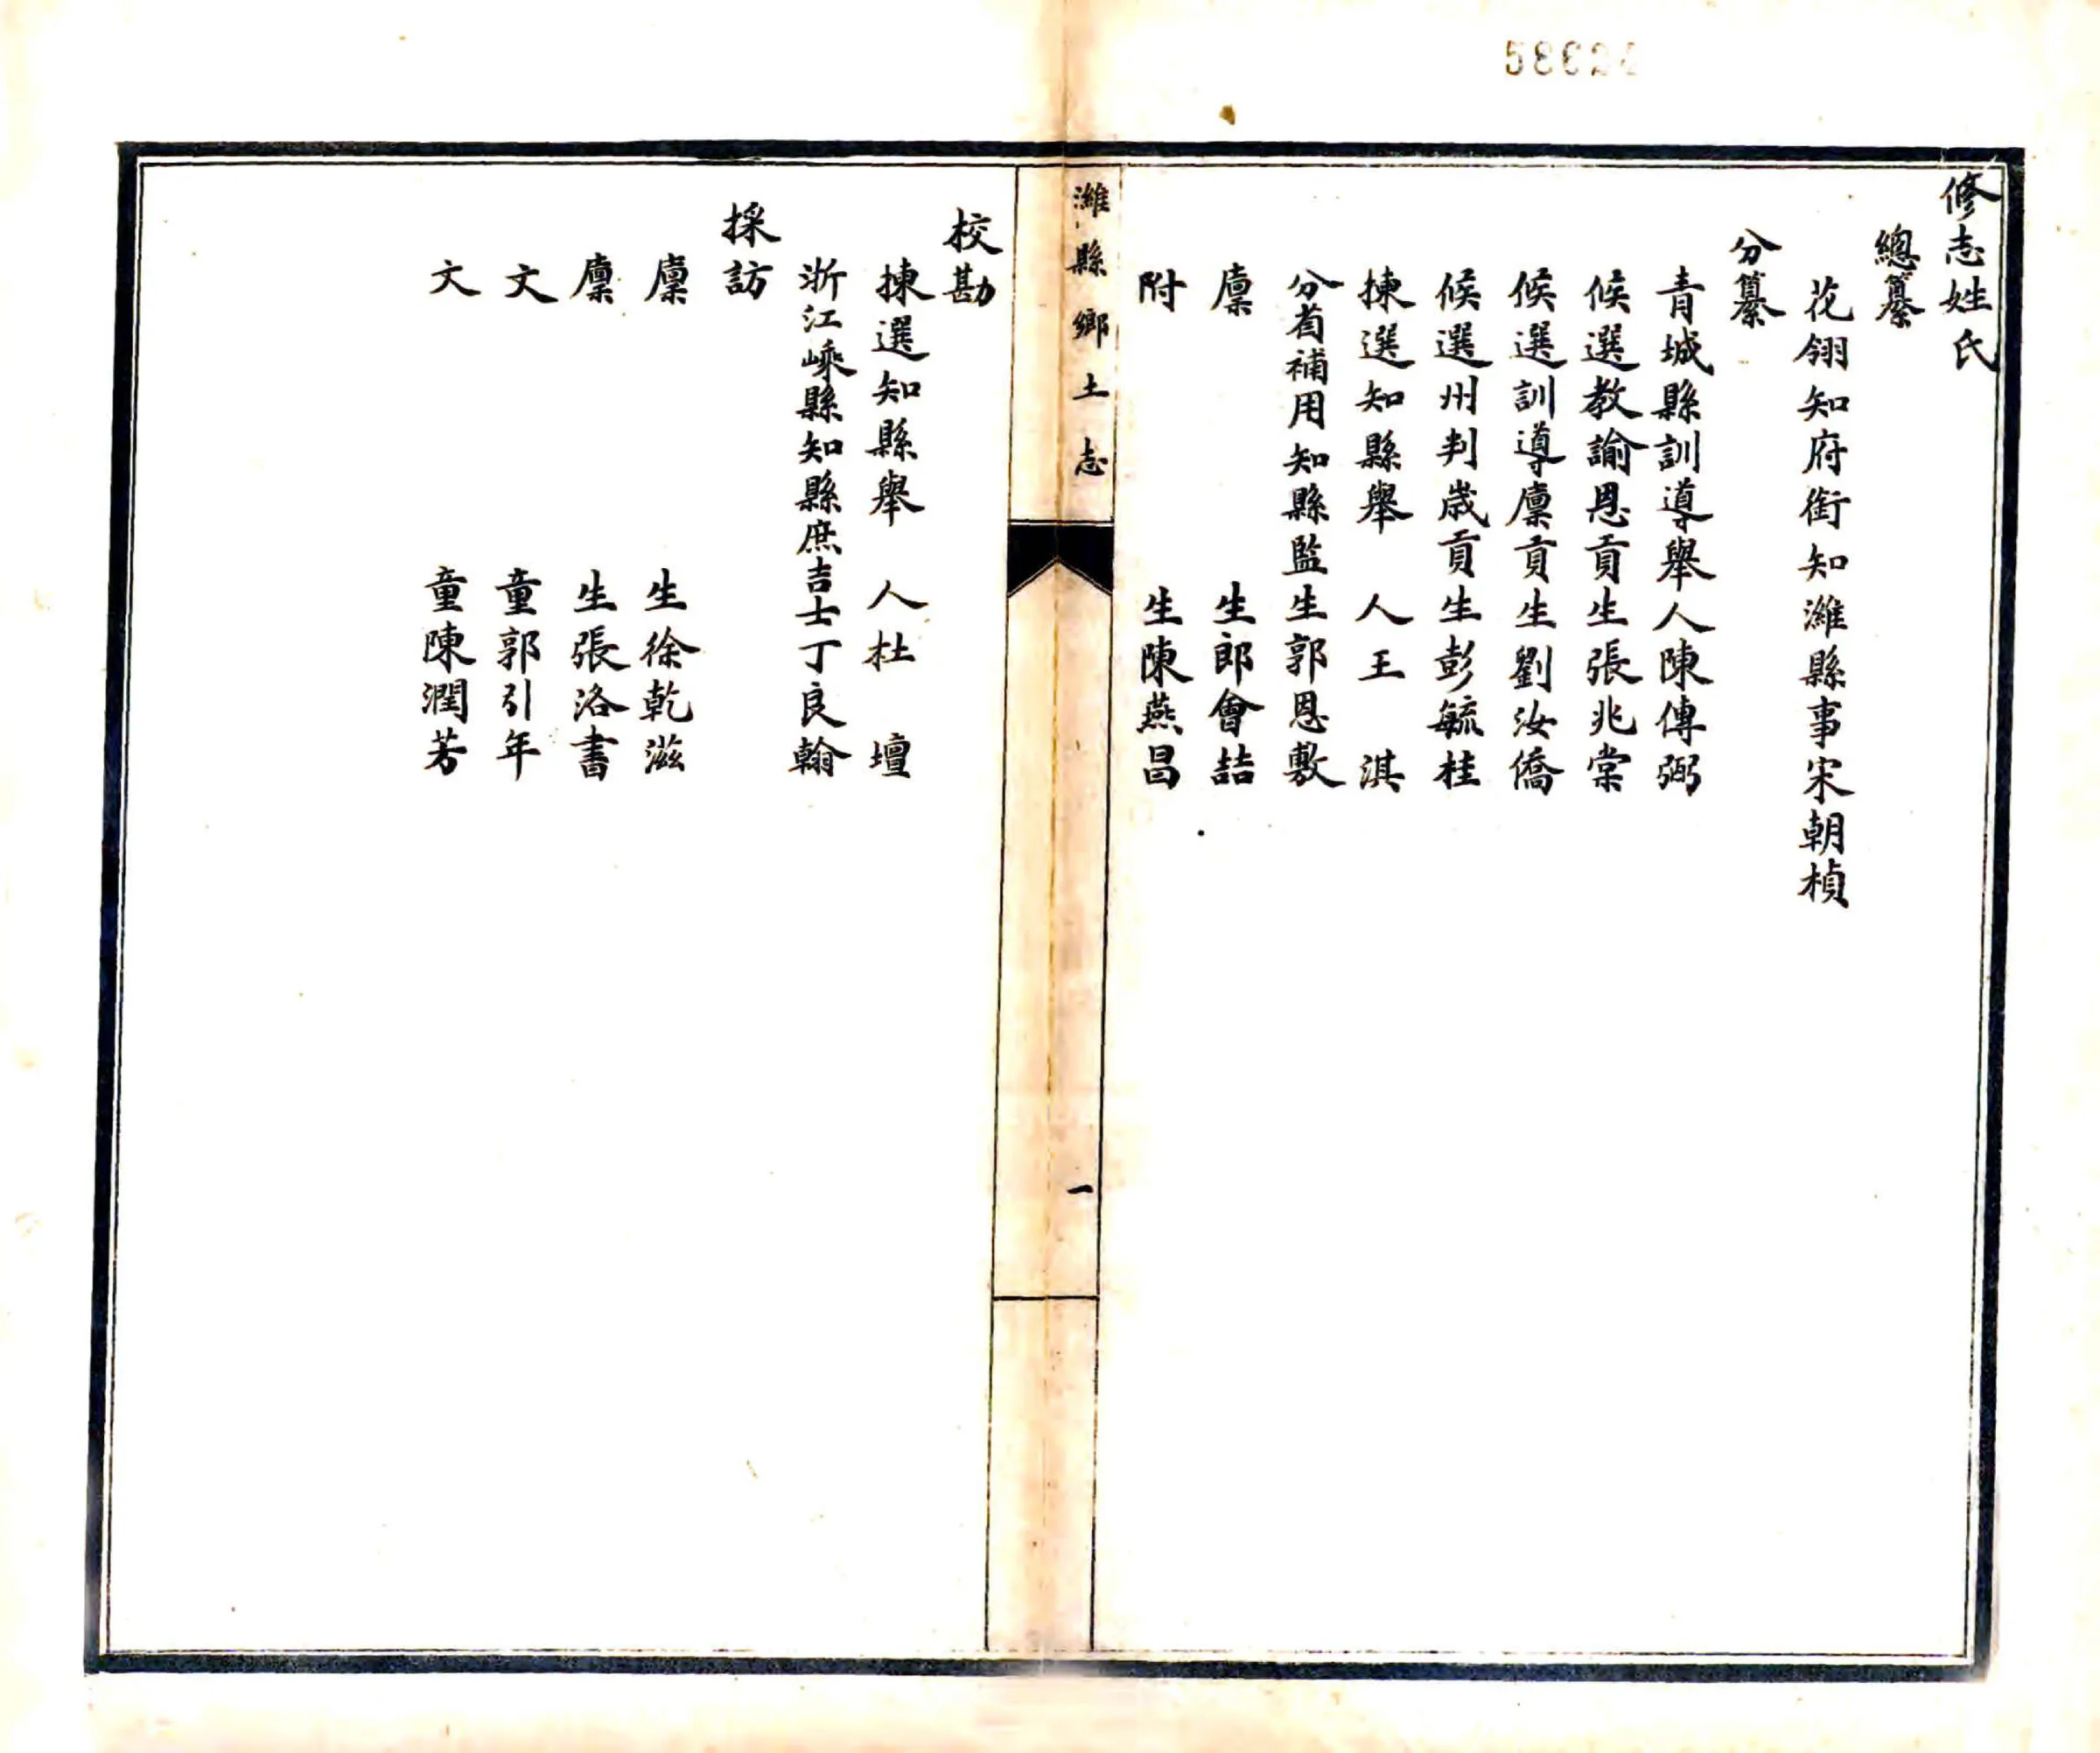 修志姓氏
總纂
花翎知府銜知濰縣事宋朝楨
分纂
青城縣訓導舉人陳傳弼
候選教諭恩貢生張兆棠
候選訓導廩貢生劉汝僑
候選州判歲貢生彭毓桂
揀選知縣舉人王淇
分省補用知縣監生郭恩敷
廩生郎會喆
附生陳燕昌
濰縣鄉土志
一
校勘
揀選知縣舉人杜壇
浙江嵊縣知縣庶吉士丁良翰
採訪
廩生徐乾滋
廩生張洛書
文童郭引年
文童陳潤芳